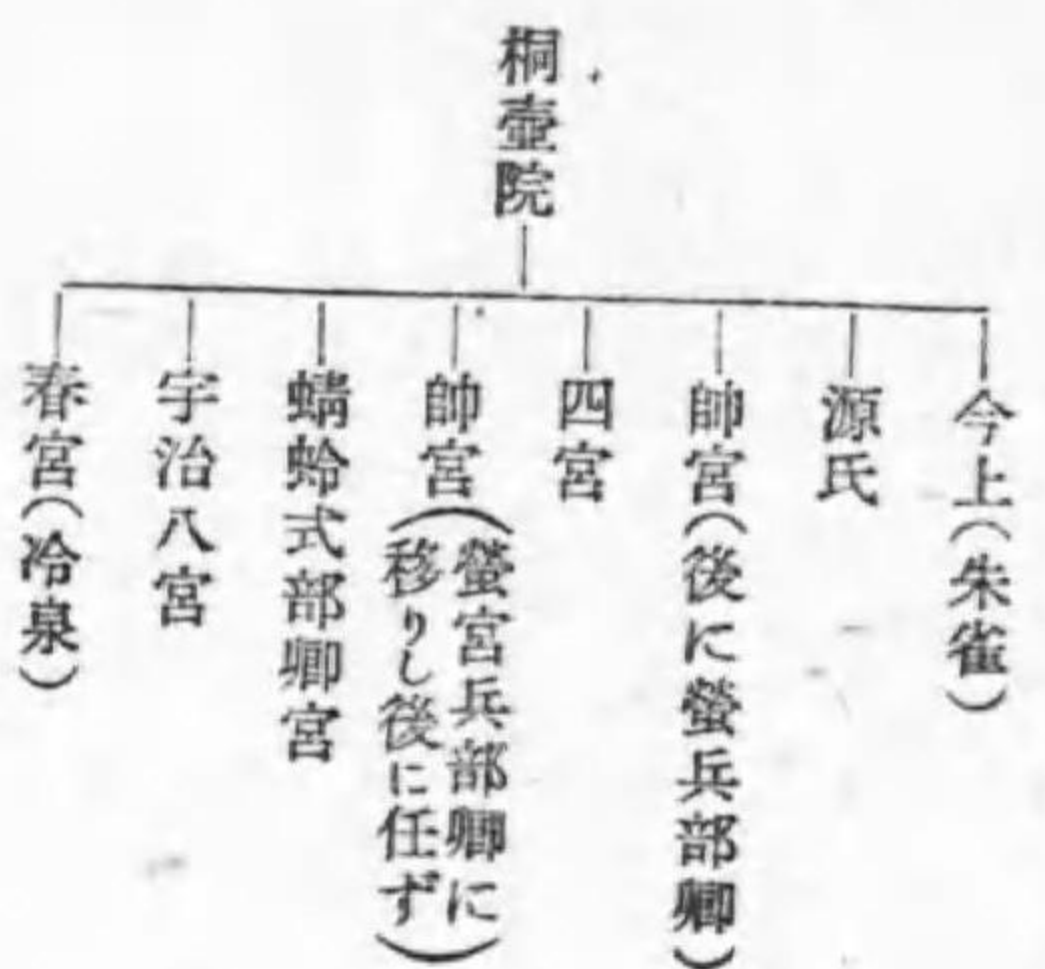 桐壺院
今上(朱雀)
源氏
帥宮(後に螢兵部卿)
四宮
帥宮(螢宮兵部卿に
移りし後に任ず)
蜻蛉式部卿宮
宇治八宮
春宮(冷泉)